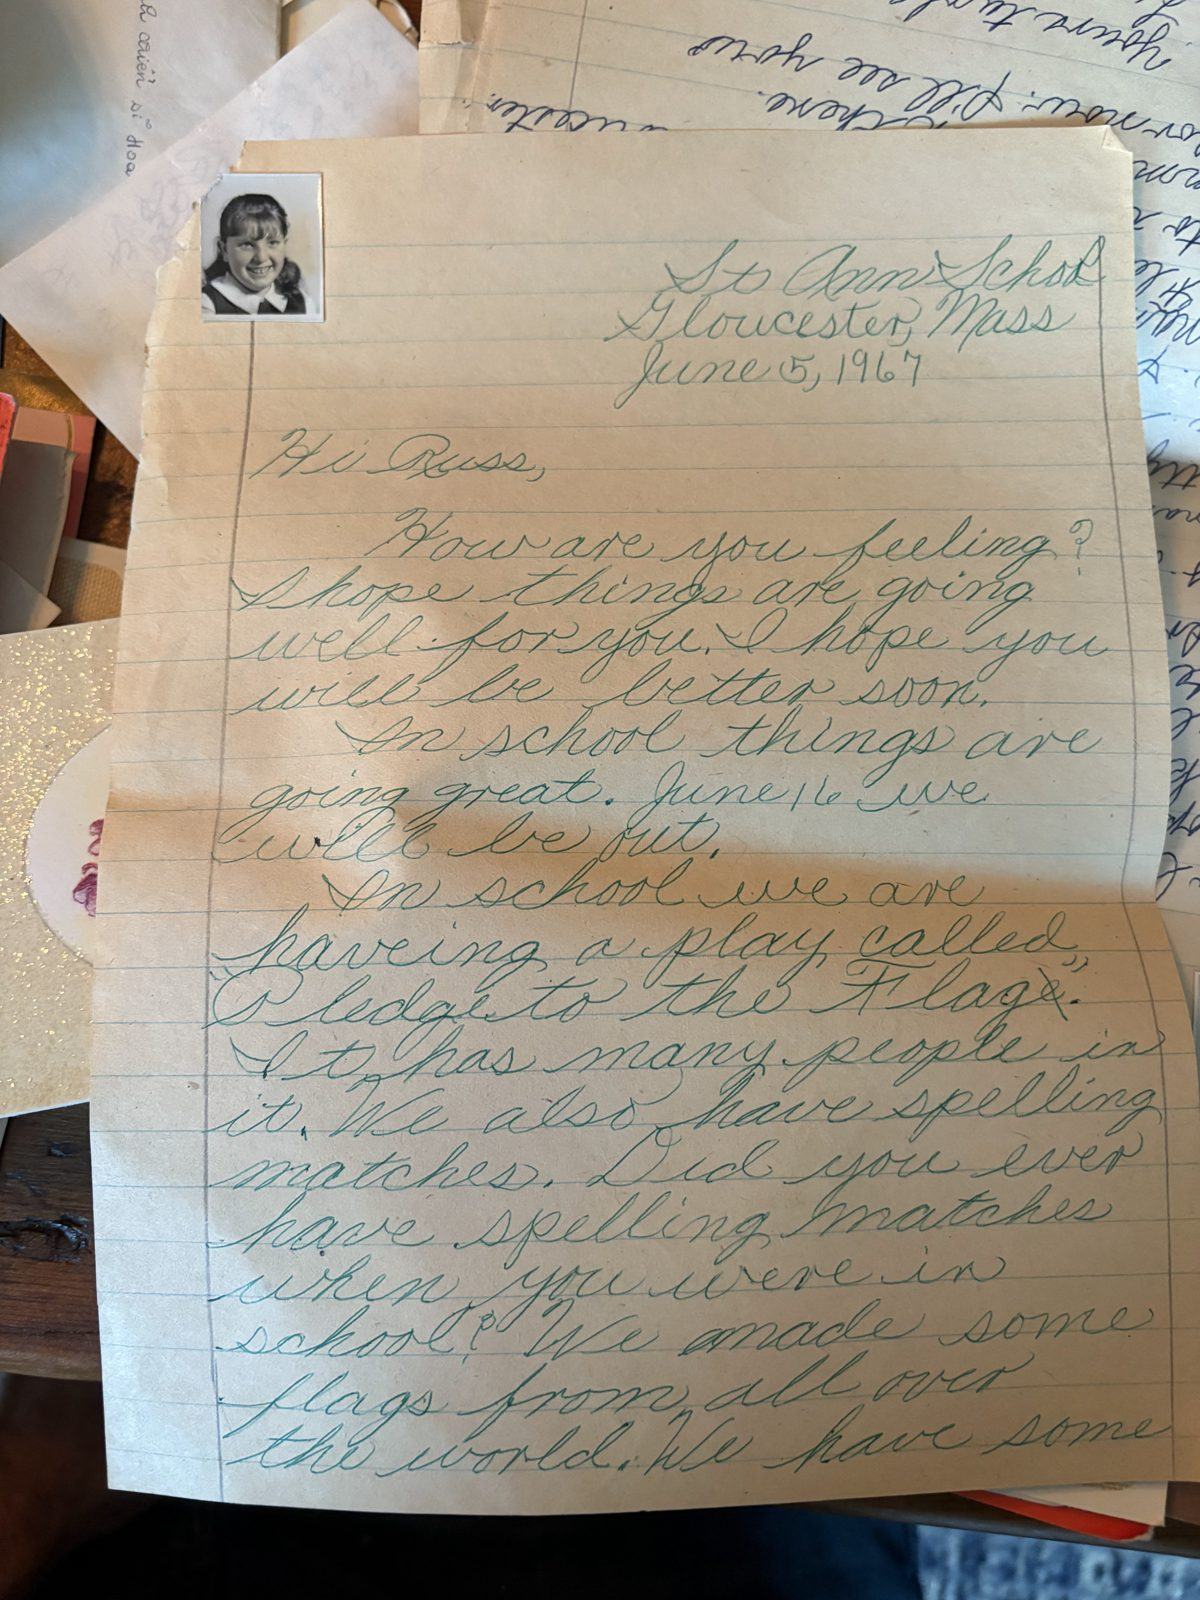 St Ann School
Gloucester, Mass
June 5, 1967
Hi Russ,
How are you feeling?
I hope things are going
well for you. I hope you
will be better soon.
In school things are
going great. June 16 we
will be out.
In school we are
haveing a play called
"Pledge to the Flag".
It has many people in
it. We also have spelling
matches. Did you ever
have spelling matches
when you were in
school? We made some
flags from all over
the world. We have some
Yours truly
now. I'll see you
there.